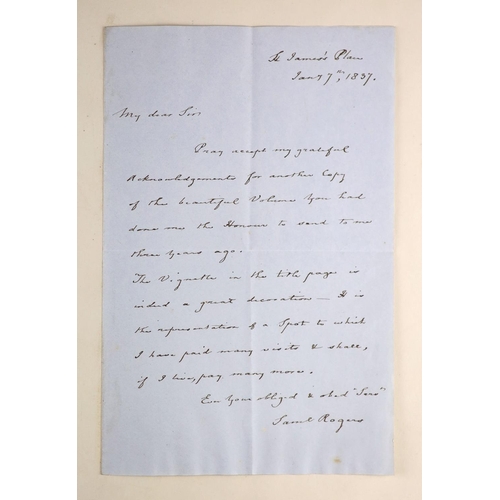 St James's Place
Jany 7th, 1837.
My dear Sir
Pray accept my grateful
Acknowledgements for another Copy
of the beautiful Volume You had
done me the Honour to send to me
three Years ago.
The Vignette in the title page is
indeed a great decoration — It is
the representation of a Spot to which
I have paid many visits & shall,
if I live, pay many more.
Ever Your obliged & obed Servt
Saml Rogers